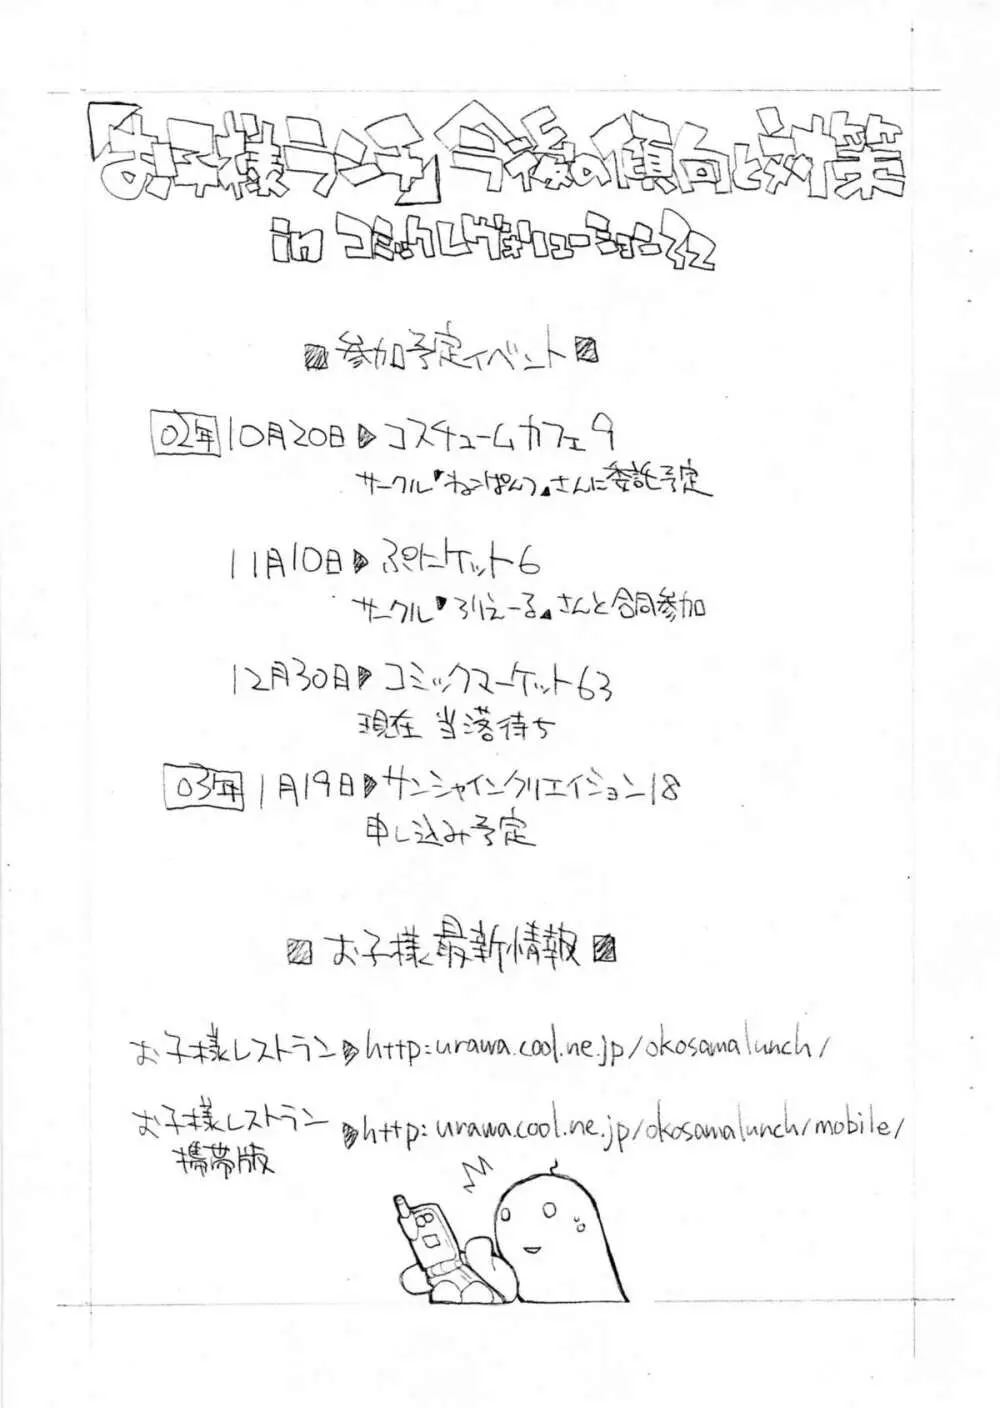 「お子様ランチ」今後の傾向と対策
in コミックレヴォリューション32
参加予定イベント
02年 10月20日 コスチュームカフェ9
サークル『ねこぱんつ』さんに委託予定
11月10日 ぷにケット6
サークル『ろりえーる』さんと合同参加
12月30日 コミックマーケット63
現在 当落待ち
03年 1月19日 サンシャインクリエイション18
申し込み予定
お子様最新情報
お子様レストラン http:urawa.cool.ne.jp/okosamalunch/
お子様レストラン携帯版 http:urawa.cool.ne.jp/okosamalunch/mobile/